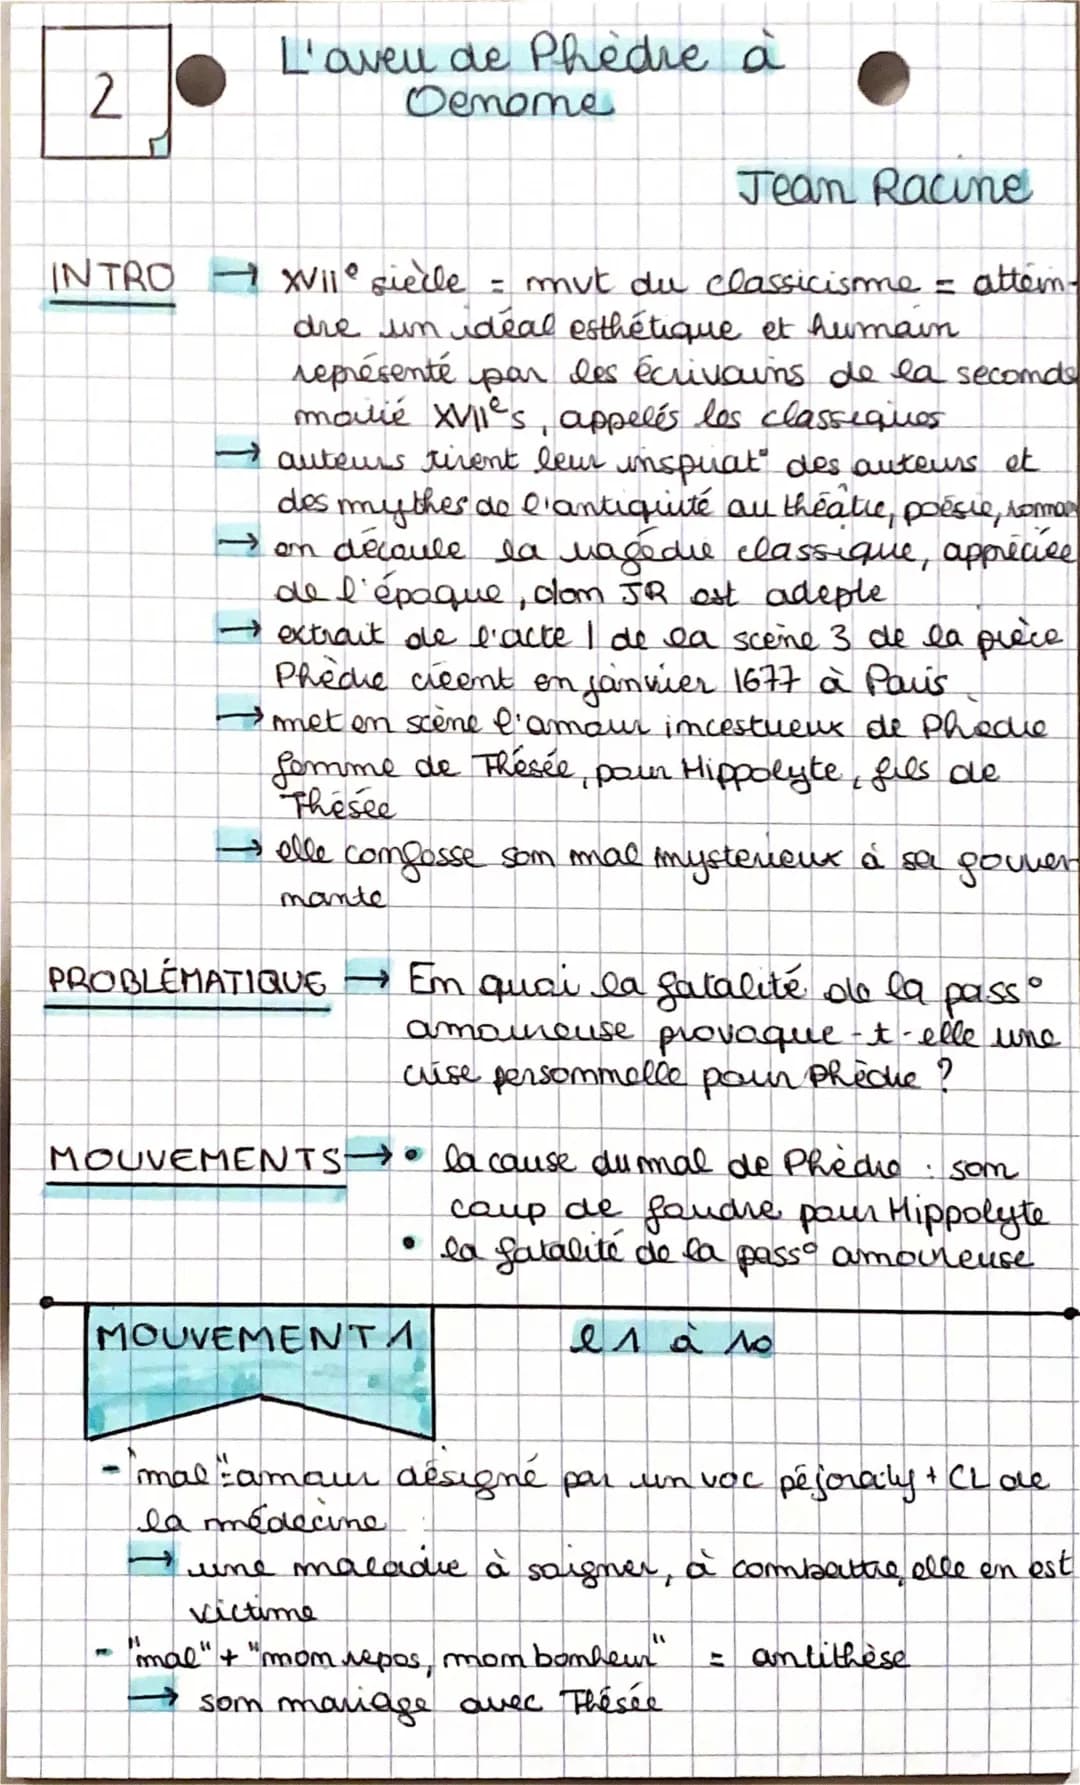 2
L'aveu de Phèdre à
Oenone
Jean Racine
INTRO → XVIIe siècle = mvt du classicisme = attein-
dre un idéal esthétique et humain
représenté par les écrivains de la seconde
moitié XVIIes, appelés les classiques
→ auteurs tirent leur inspirat° des auteurs et
des mythes de l'antiquité au théâtre, poésie, roman
→ en découle la tragédie classique, appréciée
de l'époque, dom JR est adepte
→ extrait de l'acte 1 de la scène 3 de la pièce
Phèdre créent en janvier 1677 à Paris
→ met en scène l'amour incestueux de Phèdre
femme de Thésée, pour Hippolyte, fils de
Thésée
→ elle confesse son mal mysterieux à sa gouver-
nante
PROBLÉMATIQUE → En quoi la fatalité de la pass°
amoureuse provoque-t-elle une
crise personnelle pour Phèdre ?
MOUVEMENTS → • la cause du mal de Phèdre : son
coup de foudre pour Hippolyte
• la fatalité de la pass° amoureuse
MOUVEMENT 1 l 1 à 10
- "mal" = amour désigné par un voc péjoratif + CL de
la médecine
→ une maladie à soigner, à combattre, elle en est
victime
- "mal" + "mon repos, mon bonheur" = antithèse
→ son mariage avec Thésée